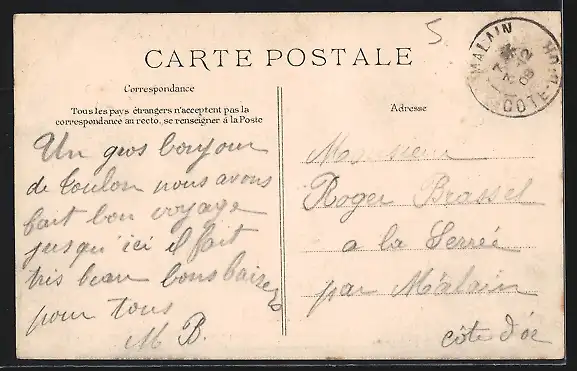 5
MALAIN
12
08
COTE-D'OR
CARTE POSTALE
Correspondance
Tous les pays étrangers n'acceptent pas la
correspondance au recto, se renseigner à la Poste
Adresse
Un gros bonjour
de Toulon nous avons
fait bon voyage
jusqu'ici il fait
très beau bons baisers
pour tous
M B.
Monsieur
Roger Brasset
a la Serrée
par Mâlain
côte d'or